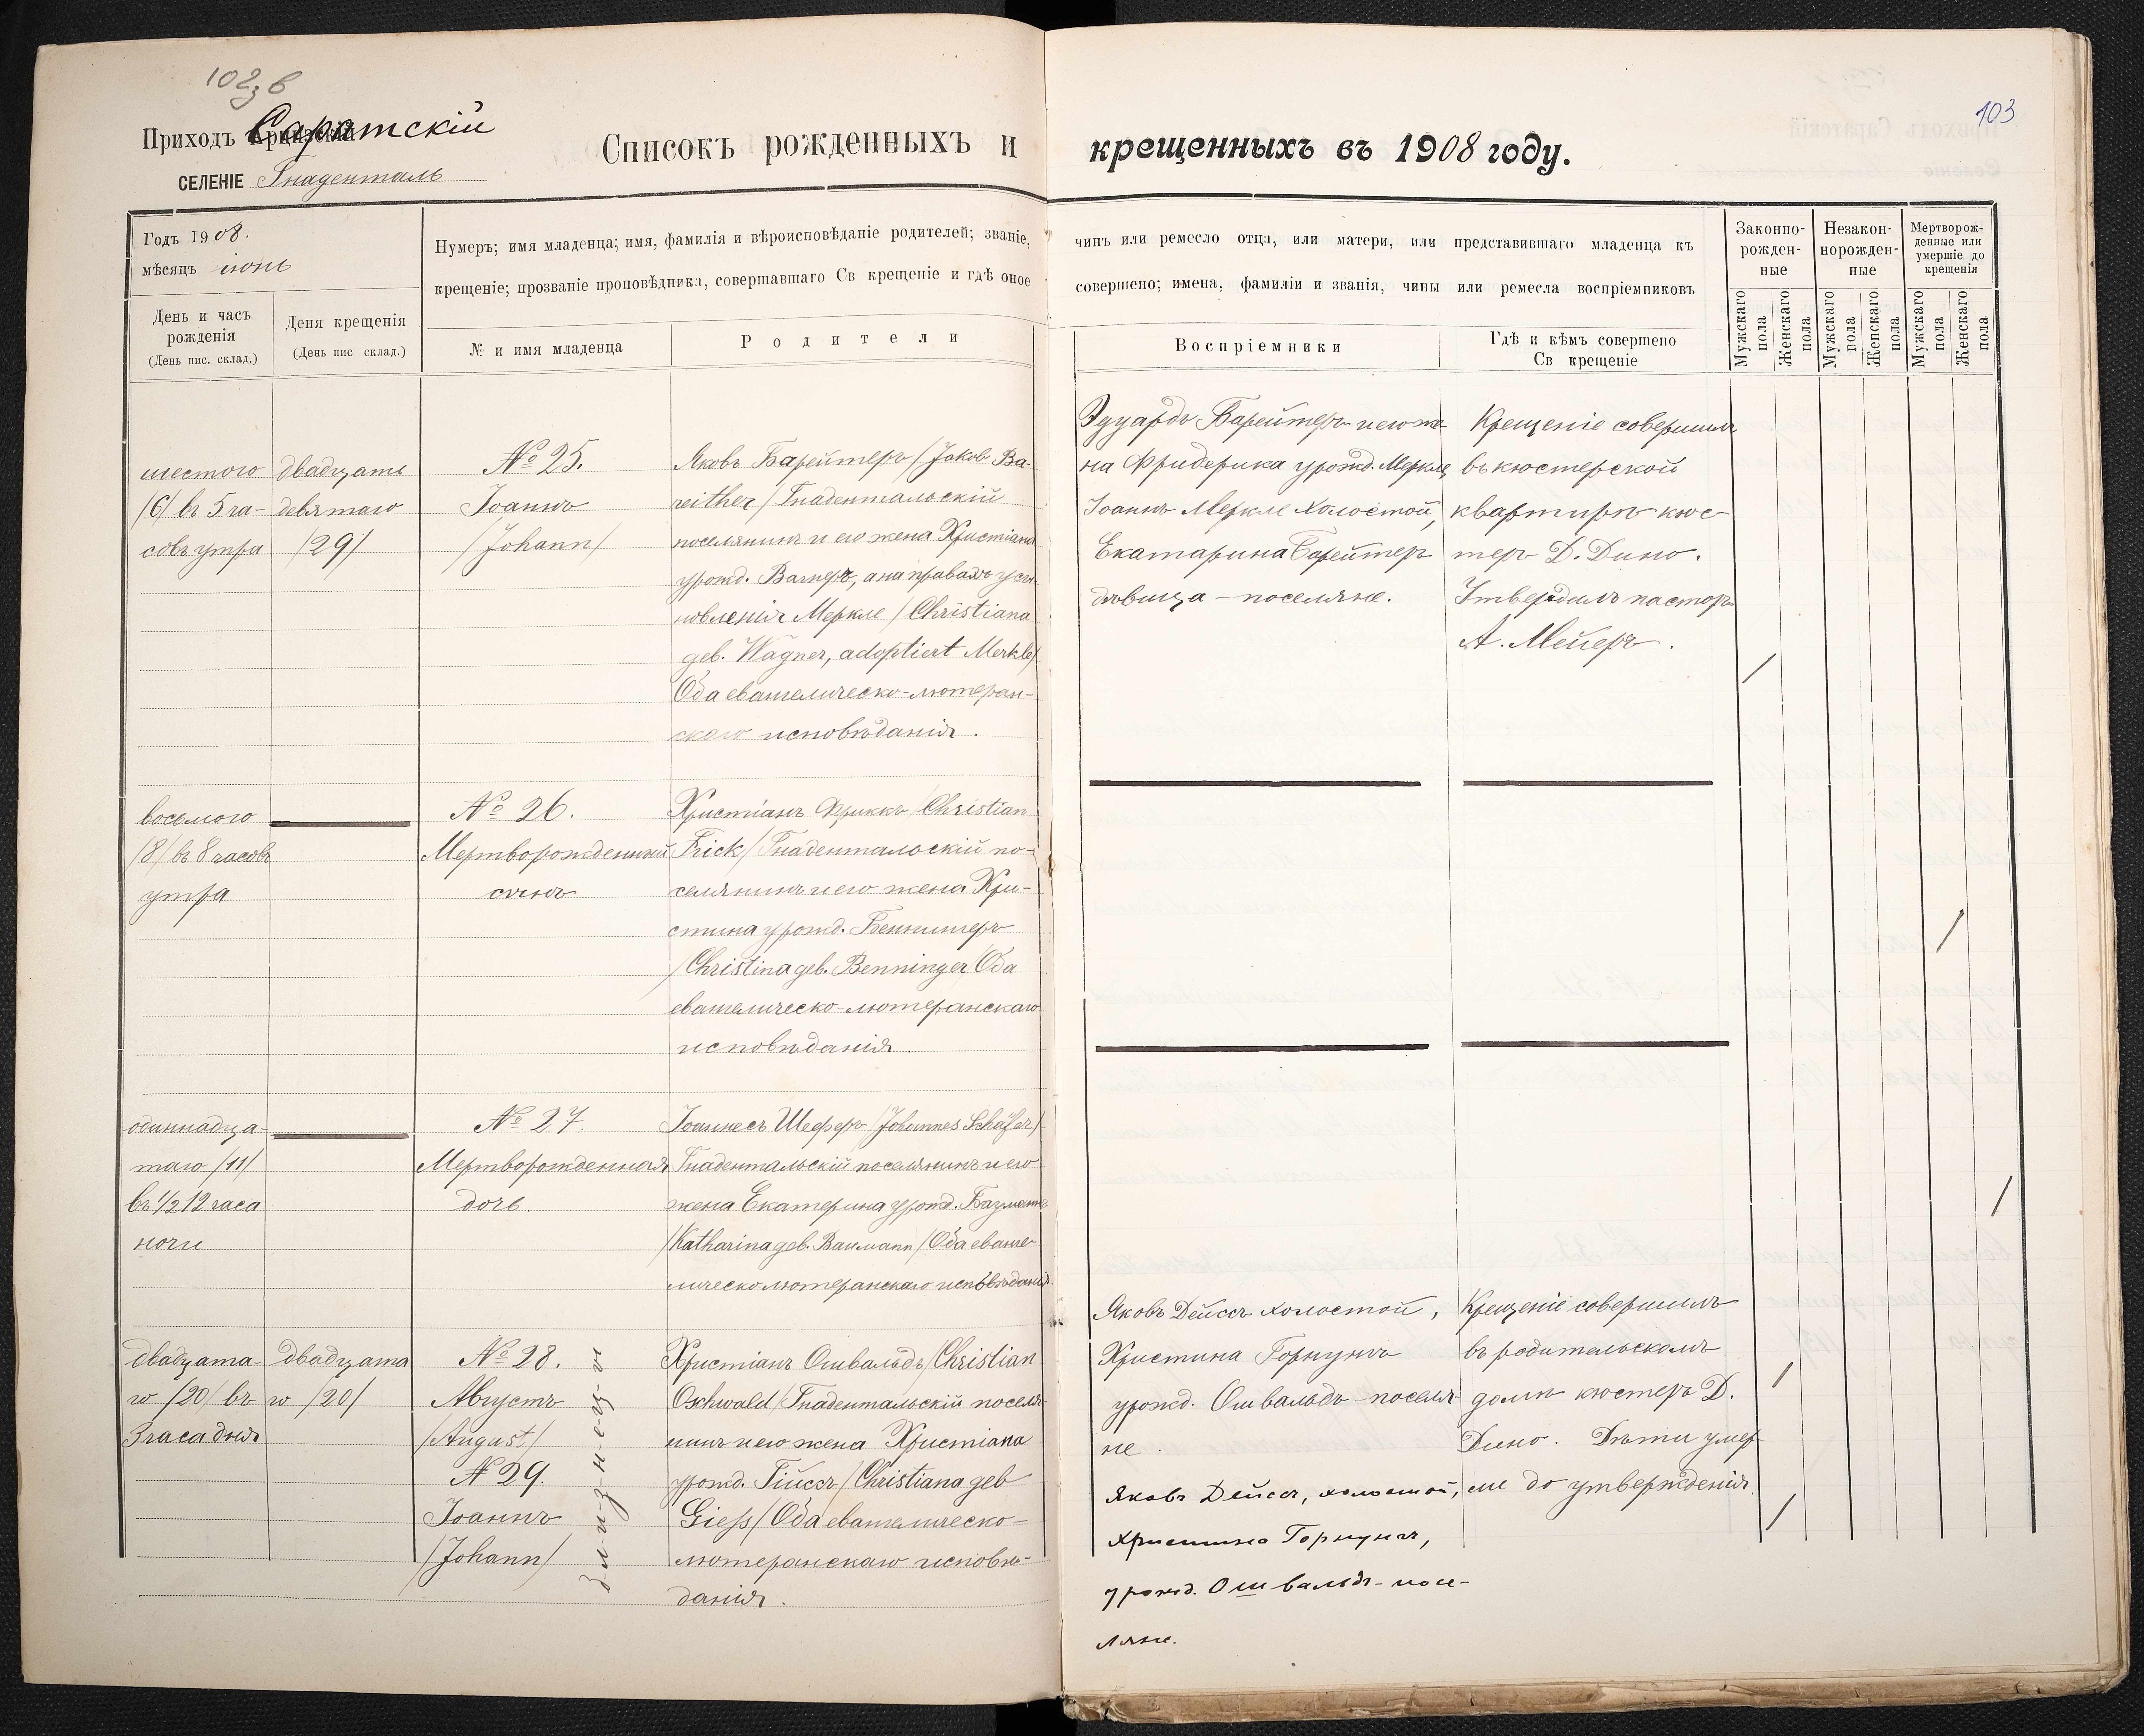 102зв
103
Приходъ Саратскій
СЕЛЕНІЕ Гнаденталь
Списокъ рожденныхъ и крещенныхъ въ 1908 году.
Годъ 1908.
мѣсяцъ іюнь
Нумеръ; имя младенца; имя, фамилія и вѣроисповѣданіе родителей; званіе, чинъ или ремесло отца, или матери, или представившаго младенца къ
крещеніе; прозваніе проповѣдника, совершавшаго Св крещеніе и гдѣ оное совершено; имена, фамиліи и званія, чины или ремесла воспріемниковъ
День и часъ
рожденія
(День пис. склад.)
Деня крещенія
(День пис склад.)
№ и имя младенца
Родители
Воспріемники
Гдѣ и кѣмъ совершено
Св крещеніе
Законно-
рожден-
ные
Незакон-
норожден-
ные
Мертворож-
денные или
умершіе до
крещенія
Мужскаго
пола
Женскаго
пола
Мужскаго
пола
Женскаго
пола
Мужскаго
пола
Женскаго
пола
шестого
/6/ въ 5 ча-
совъ утра
двадцать
девятаго
/29/
№ 25.
Іоаннъ
/Johann/
Яковъ Барейтеръ /Jakob Ba-
reither/ Гнадентальскій
поселянинъ и его жена Христіана
урожд. Вагнеръ, а на правахъ усы-
новленія Меркле /Christiana
geb. Wagner, adoptiert Merkle/
Оба евангелическо-лютеран-
скаго исповѣданія.
Эдуардъ Барейтеръ и его же-
на Фридерика урожд. Меркле,
Іоаннъ Меркле холостой,
Екатарина Барейтеръ
дѣвица – поселяне.
Крещеніе совершилъ
въ кюстерской
квартирѣ кюс-
теръ Д. Дино.
Утвердилъ пасторъ
А. Мейеръ.
восьмого
/8/ въ 8 часовъ
утра
№ 26.
Мертворожденный
сынъ
Христіанъ Фриккъ /Christian
Frick/ Гнадентальскій по-
селянинъ и его жена Хри-
стина урожд. Беннингеръ
/Christina geb. Benninger/ Оба
евангелическо-лютеранскаго
исповѣданія.
одиннадца-
таго /11/
въ 1/2 12 часа
ночи
№ 27.
Мертворожденная
дочь.
Іоаннесъ Шеферъ /Johannes Schäfer/
Гнадентальскій поселянинъ и его
жена Екатерина урожд. Бауманъ
/Katharina geb. Baumann/ Оба еванге-
лическолютеранскаго исповѣданія.
двадцата-
го /20/ въ
3 часа дня
двадцата
го /20/
№ 28.
Августъ
/August/
№ 29.
Іоаннъ
/Johann/
Близнецы
Христіанъ Ошвальдъ /Christian
Oschwald/ Гнадентальскій поселя-
нинъ и его жена Христіана
урожд. Гійссъ /Christiana geb
Giess/ Оба евангелическо-
лютеранскаго исповѣ-
данія.
Яковъ Дейссъ холостой,
Христина Горнунгъ
урожд. Ошвальдъ – поселя
не.
Яковъ Дейссъ, холостой,
Христина Горнунгъ,
урожд. Ошвальдъ – посе-
ляне.
Крещеніе совершилъ
въ родительскомъ
домѣ кюстеръ Д.
Дино. Дѣти умер-
ле до утвержденія.